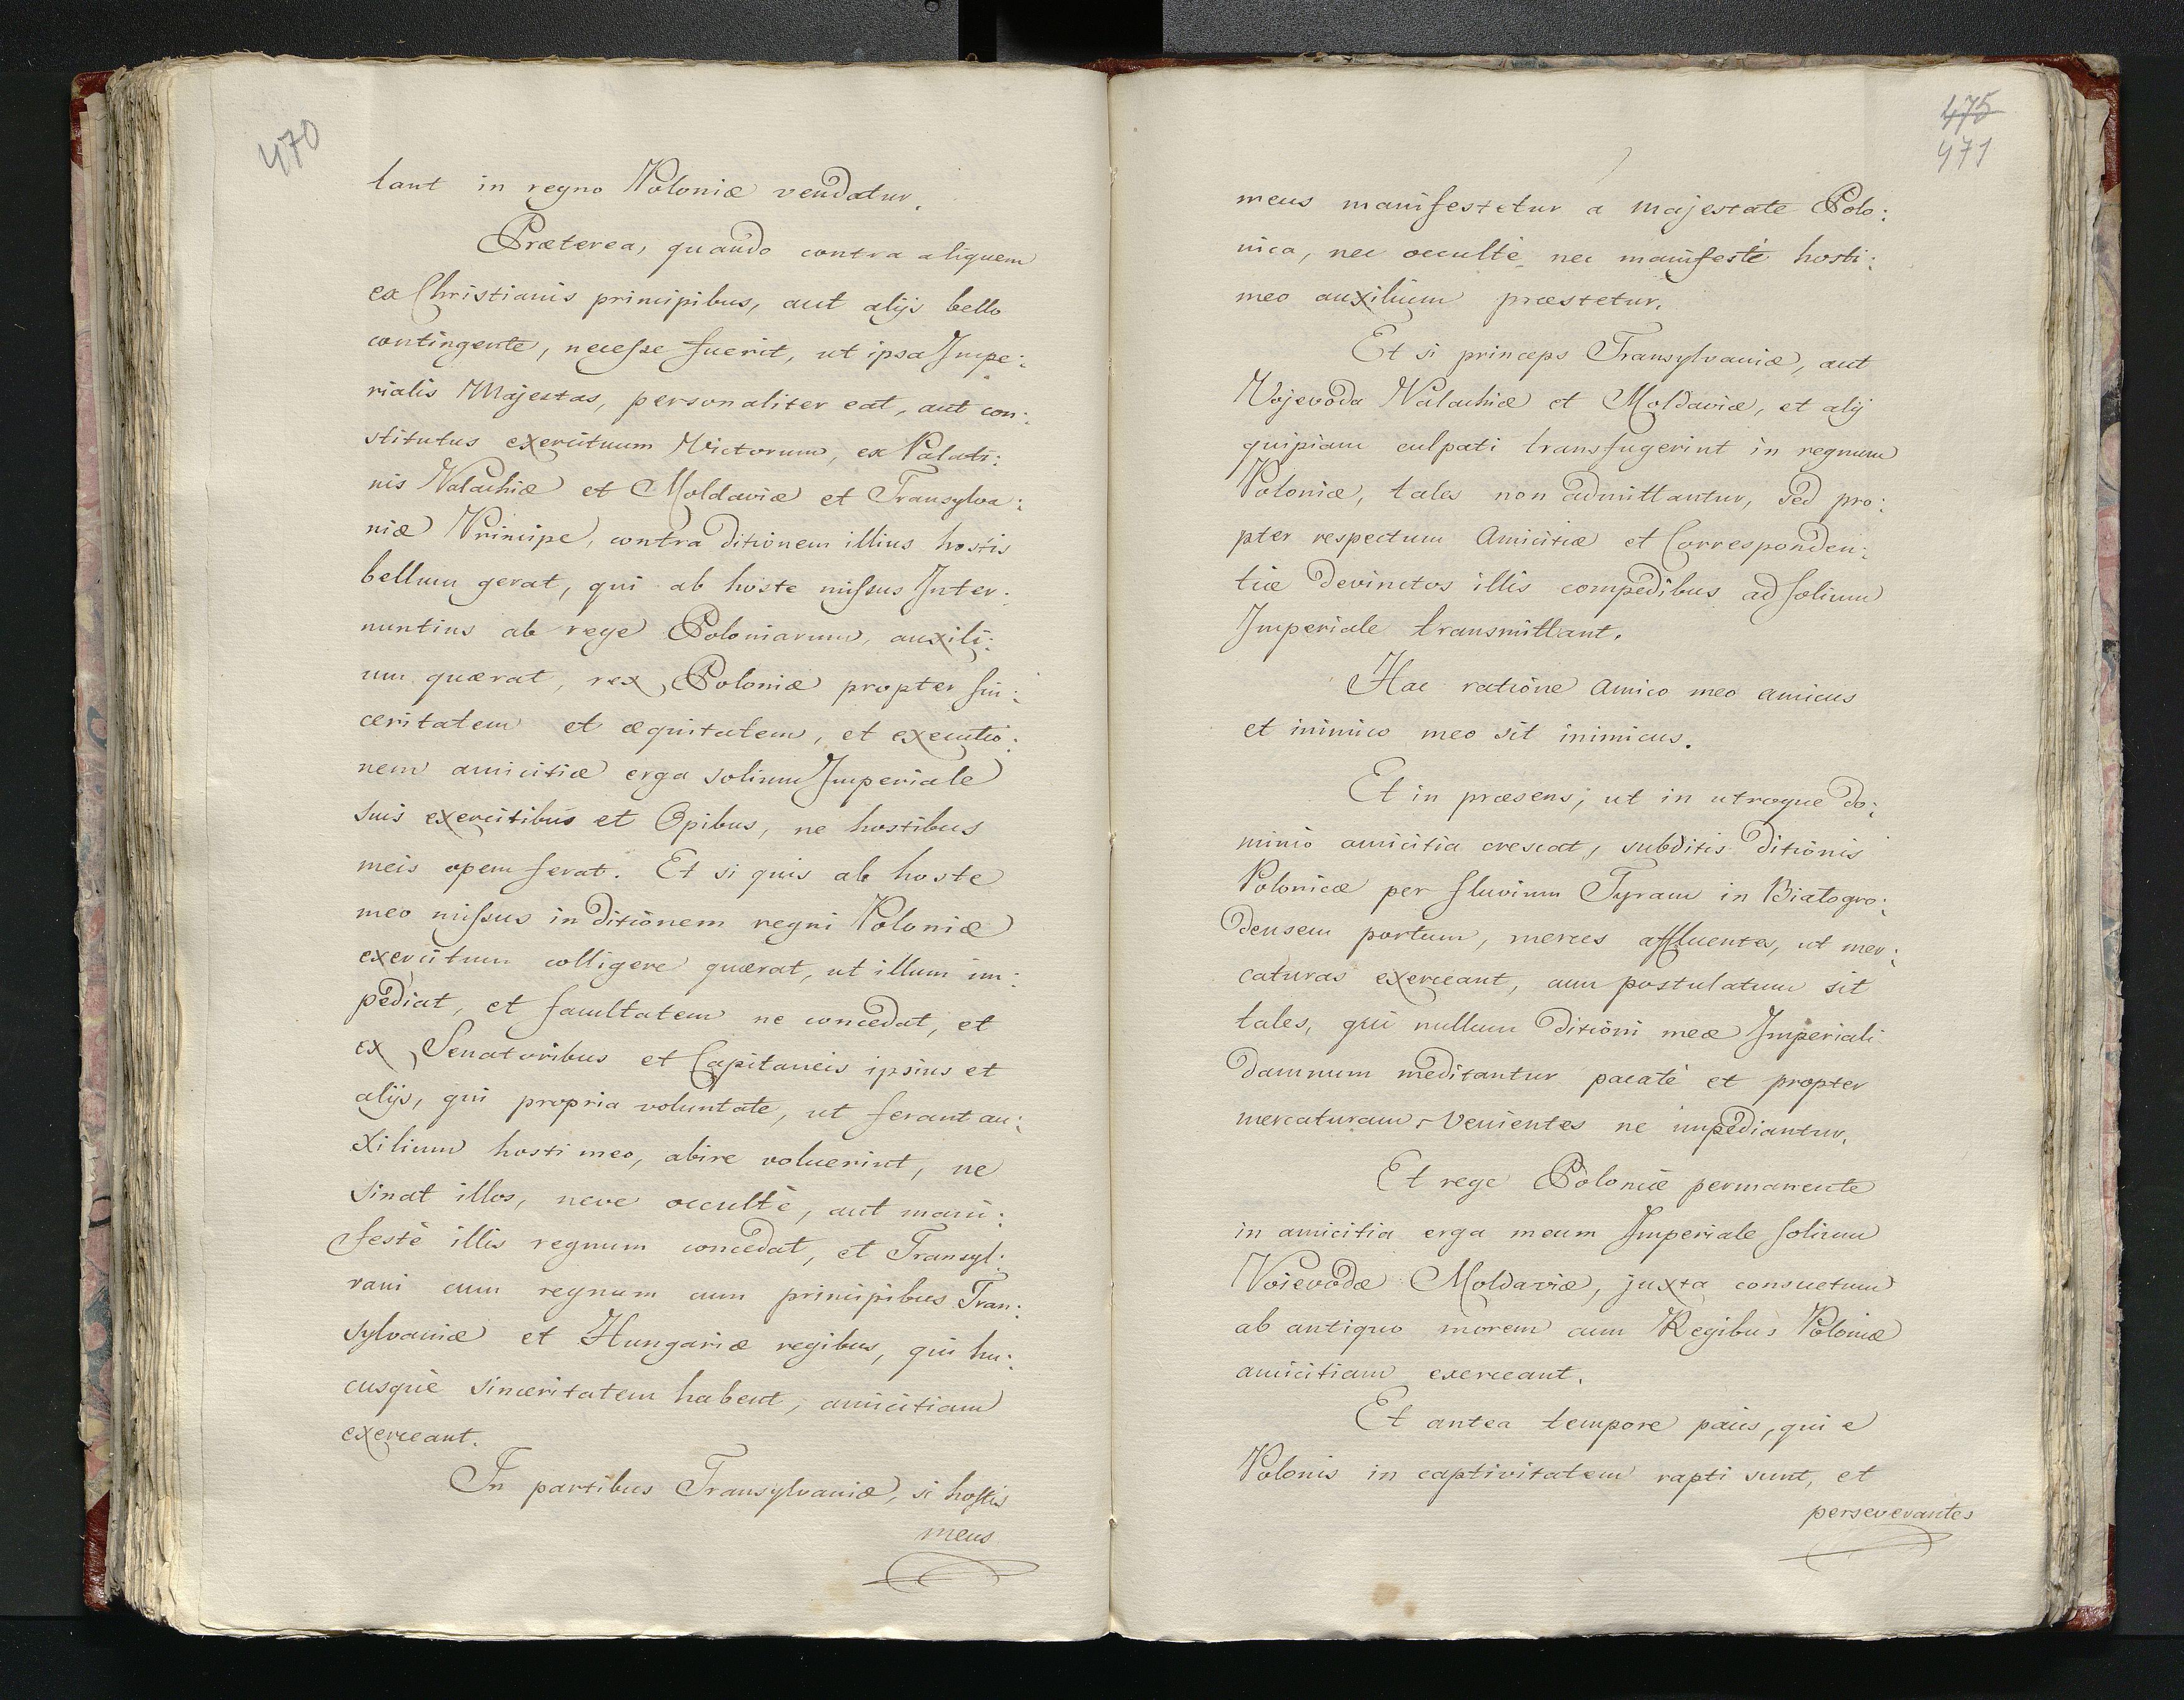 470
tant in regno Poloniæ vendatur.
Præterea, quando contra aliquem
ex Christianis principibus, aut alijs bello
contingente, necesse fuerit, ut ipsa Impe:
rialis Majestas, personaliter eat, aut con:
stitutus exercituum Victorum, ex Palati:
nis Valachiæ et Moldaviæ et Transylva:
niæ Principe, contra ditionem illius hostis
bellum gerat, qui ab hoste missus Inter:
nuntius ab rege Poloniarum, auxili:
um quærat, rex Poloniæ propter sin:
ceritatem et æquitatem, et executio:
nem amicitiæ erga solium Imperiale
suis exercitibus et Opibus, ne hostibus
meis opem ferat. Et si quis ab hoste
meo missus in ditionem regni Poloniæ
exercitum colligere quærat, ut illum im:
pediat, et facultatem ne concedat, et
ex Senatoribus et Capitaneis ipsius et
alijs, qui propria voluntate, ut ferant au:
xilium hosti meo, abire voluerint, ne
sinat illos, neve occultè, aut mani:
festè illis regnum concedat, et Transyl:
vani cum regnum cum principibus Tran:
sylvaniæ et Hungariæ regibus, qui hu:
cusquè sinceritatem habent, amicitiam
exerceant.
In partibus Transylvaniæ, si hostis
meus
475
471
meus manifestetur a Majestate Polo:
nica, nec occultè nec manifestè hosti:
meo auxilium præstetur.
Et si princeps Transylvaniæ, aut
Vojevoda Valachiæ et Moldaviæ, et alij
quipiam culpati transfugerint in regnum
Poloniæ, tales non admittantur, sed pro:
pter respectum Amicitiæ et Corresponden:
tiæ devinctos illis compedibus ad solium
Imperiale transmittant.
Hac ratione Amico meo amicus
et inimico meo sit inimicus.
Et in præsens, ut in utroque do:
minio amicitia crescat, subditis ditionis
Polonicæ per fluvium Tyram in Biatogro:
densem portum, merces affluentes, ut mer:
caturas exerceant, cum postulatum sit
tales, qui nullum ditioni meæ Imperiali
damnum meditantur pacatè et propter
mercaturam venientes ne impediantur.
Et rege Poloniæ permanente
in amicitia erga meum Imperiale solium
Voievodæ Moldaviæ, juxta consuetum
ab antiquo morem cum Regibus Poloniæ
amicitiam exerceant.
Et antea tempore pacis, qui e
Polonis in captivitatem rapti sunt, et
perseverantes